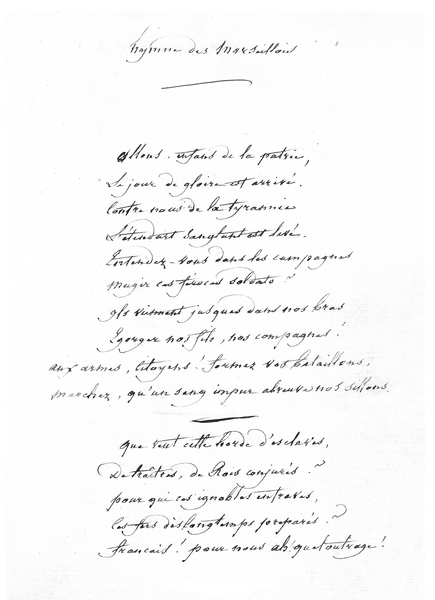 hymne des Marseillois
Allons enfans de la patrie,
Le jour de gloire est arrivé.
Contre nous de la tyrannie
L'étendart sanglant est levé.
Entendez-vous dans les campagnes
Mugir ces féroces soldats ?
Ils viennent jusques dans nos bras
Egorger nos fils, nos compagnes !
aux armes, Citoyens ! formez vos bataillons ;
marchez, qu'un sang impur abreuve nos sillons.
Que veut cette horde d'esclaves,
De traîtres, de Rois conjurés ?
pour qui ces ignobles entraves,
ces fers dès longtemps préparés ?
français ! pour nous ah ! quel outrage !